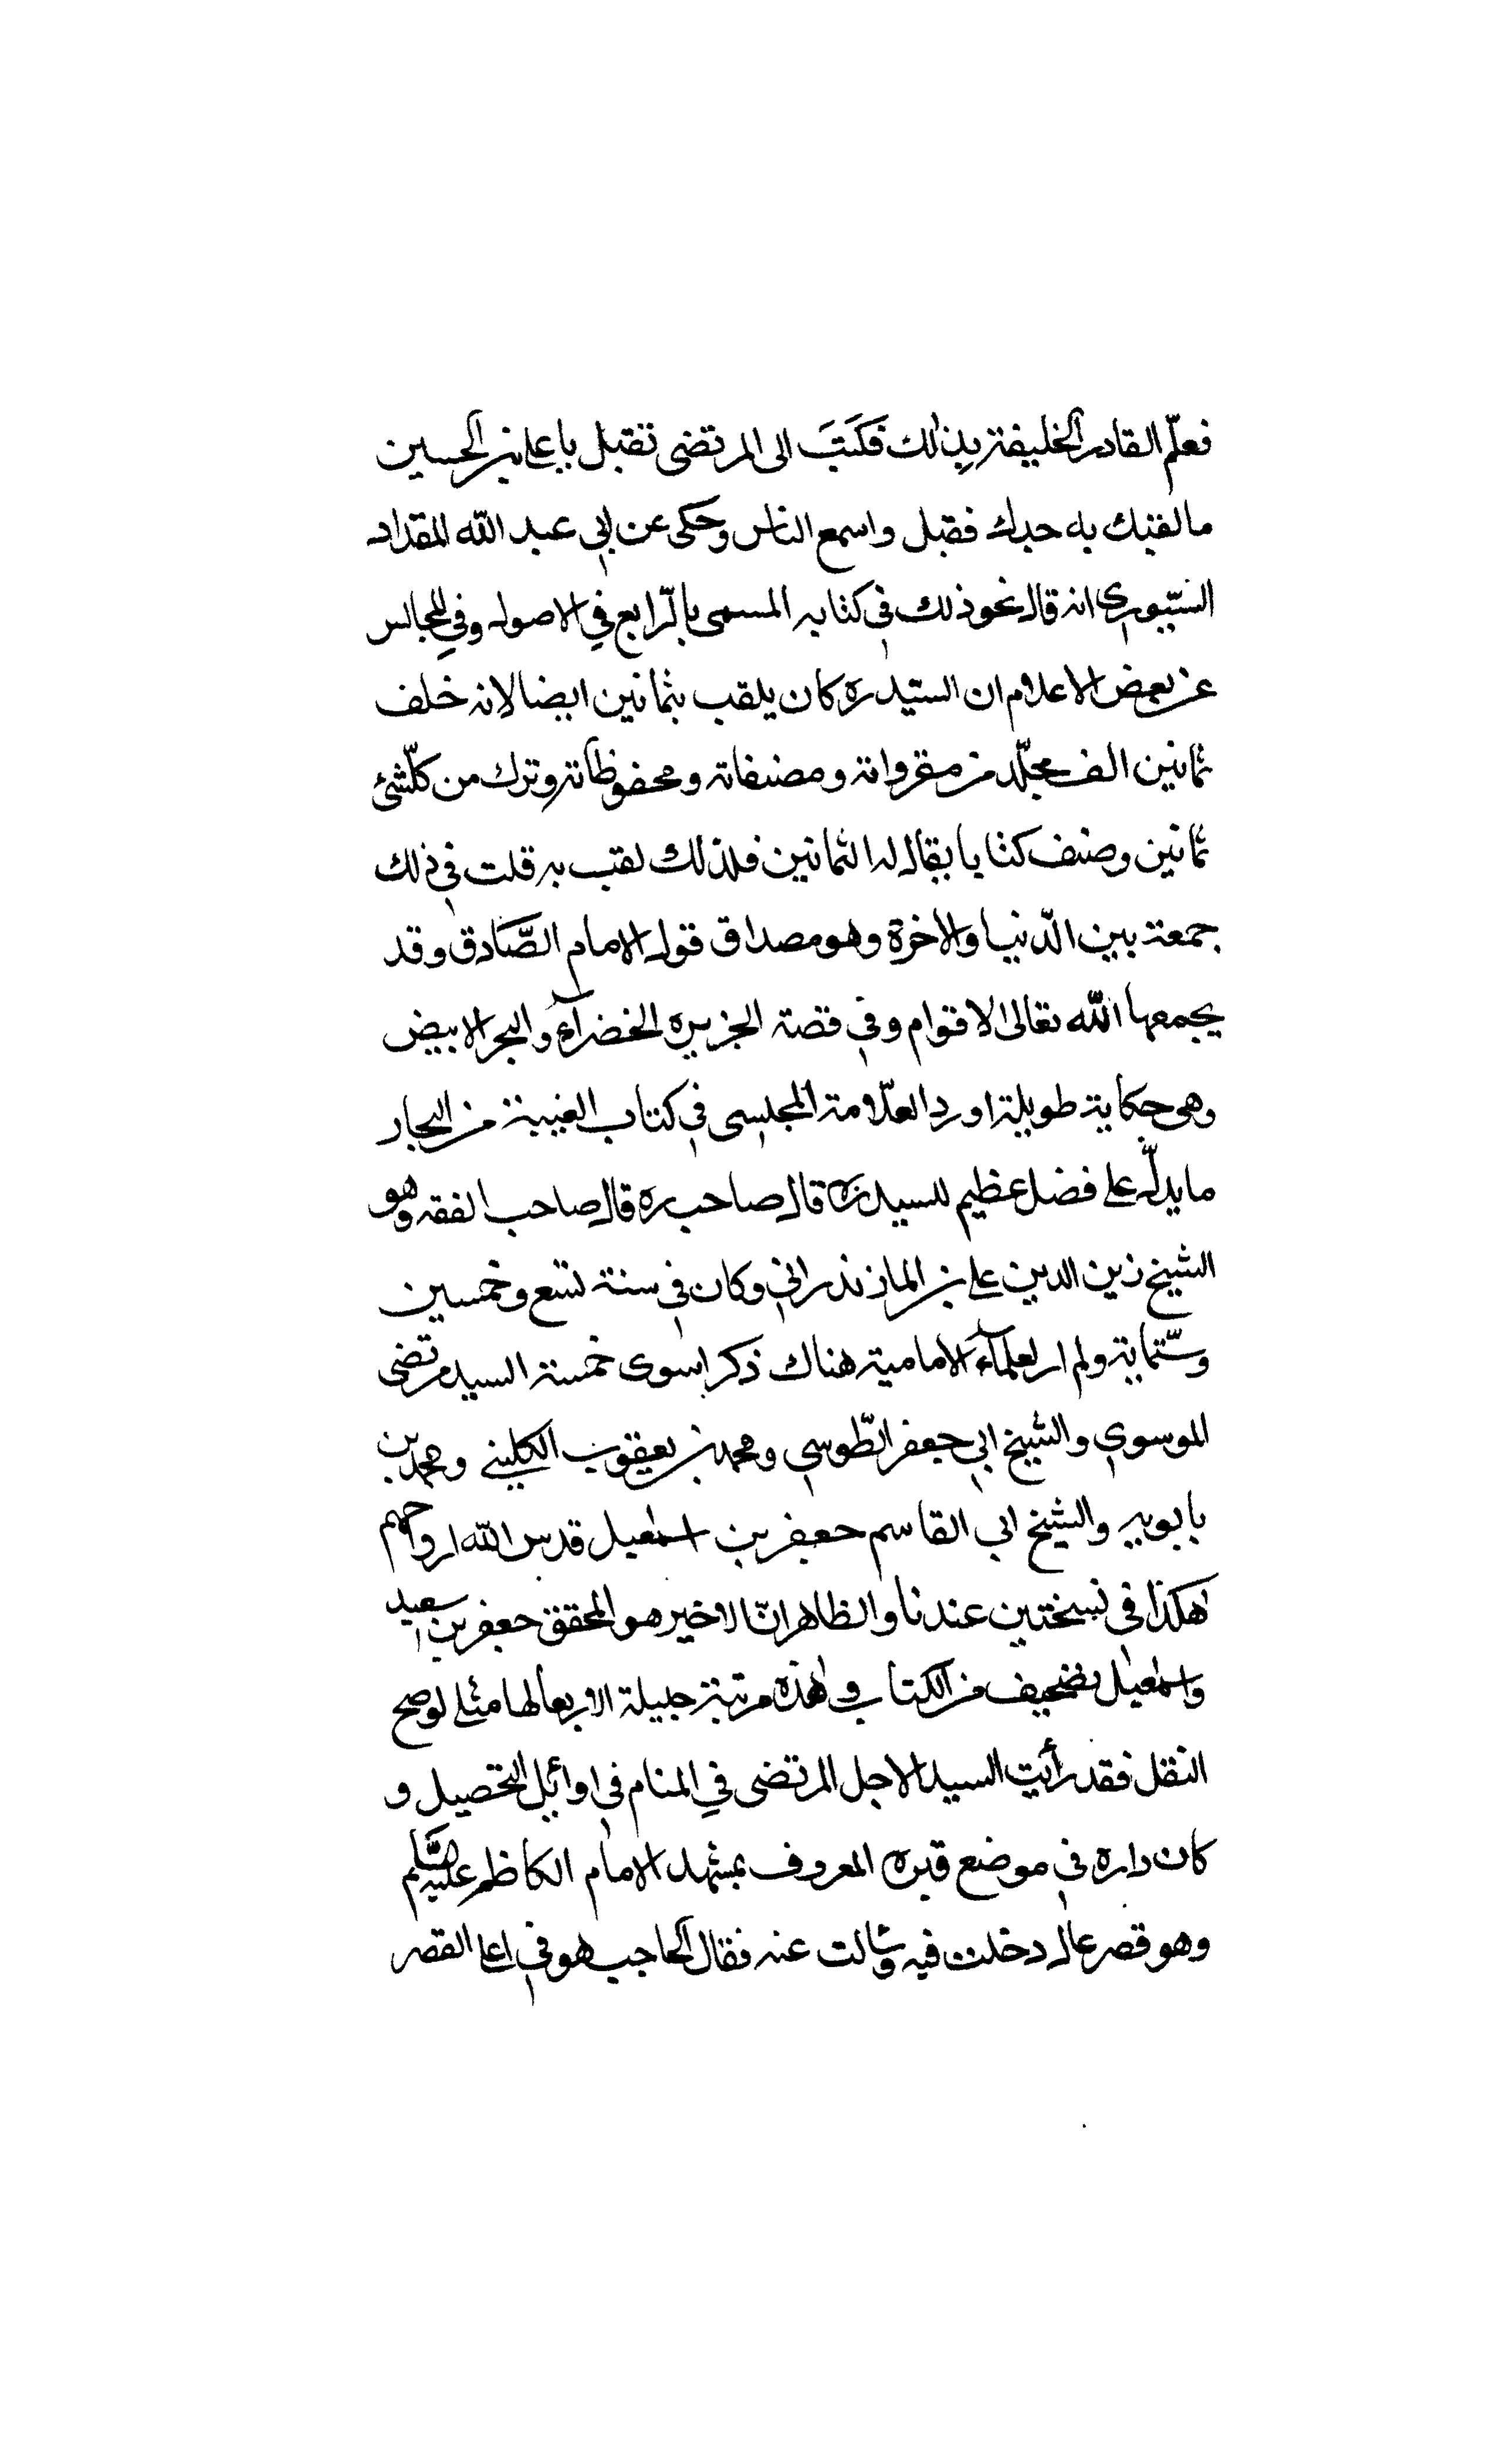 فعلّم القادر الخليفة بذلك فَكَتَبَ الى المرتضى تقبل يا على بن الحسين
ما لقبك به جدك فقبل واسمع الناس وحكى عن ابى عبد الله المقداد
السّيورى انه قال نحو ذلك فى كتابه المسمى بالرّابع في الاصول وفي المجالس
عن بعض الاعلام ان السيّد ره كان يلقب بثمانين ايضا لانه خلف
ثمانين الف مجلّد من مقرواته ومصنفاته ومحفوظاته وترك من كلّ شئ
ثمانين وصنف كتابا يقال له الثمانين فلذلك لقب به قلت فى ذلك
جمعة بين الدّنيا والاخرة وهو مصداق قول الامام الصَّادق وقد
يجمعها الله تعالى لاقوام وفى قصة الجزيره الخضرآء والبحر الابيض
وهى حكاية طويلة اورد العلّامة المجلسى فى كتاب الغيبة من البحار
ما يدلّ على فضل عظيم للسيد ره قال صاحب ره قال صاحب الفقه وهو
الشيخ زين الدين على بن المازندرانى وكان فى سنة تسع وخمسين
وستّماية ولم ار لعلمآء الامامية هناك ذكرا سوى خمسة السيد مرتضى
الموسوي والشيخ ابى جعفر الطّوسي ومحمد بن يعقوب الكليني ومحمد بن
بابويه والشيخ ابى القاسم جعفر بن اسمعيل قدس الله ارواحهم
هكذا فى نسختين عندنا والظاهر انّ الاخير هو المحقق جعفر بن سعيد
واسمعيل تصحيف من الكتاب وهذه مرتبة جليلة الاربعا لها مثلے لو صح
النقل فقد رأيت السيد الاجل المرتضى في المنام فى اوائل التحصيل و
كان داره فى موضع قبره المعروف بمشهد الامام الكاظم عليه السّلم
وهو قصر عال دخلت فيه وسالت عنه فقال الحاجب هو فى اعلا القصر